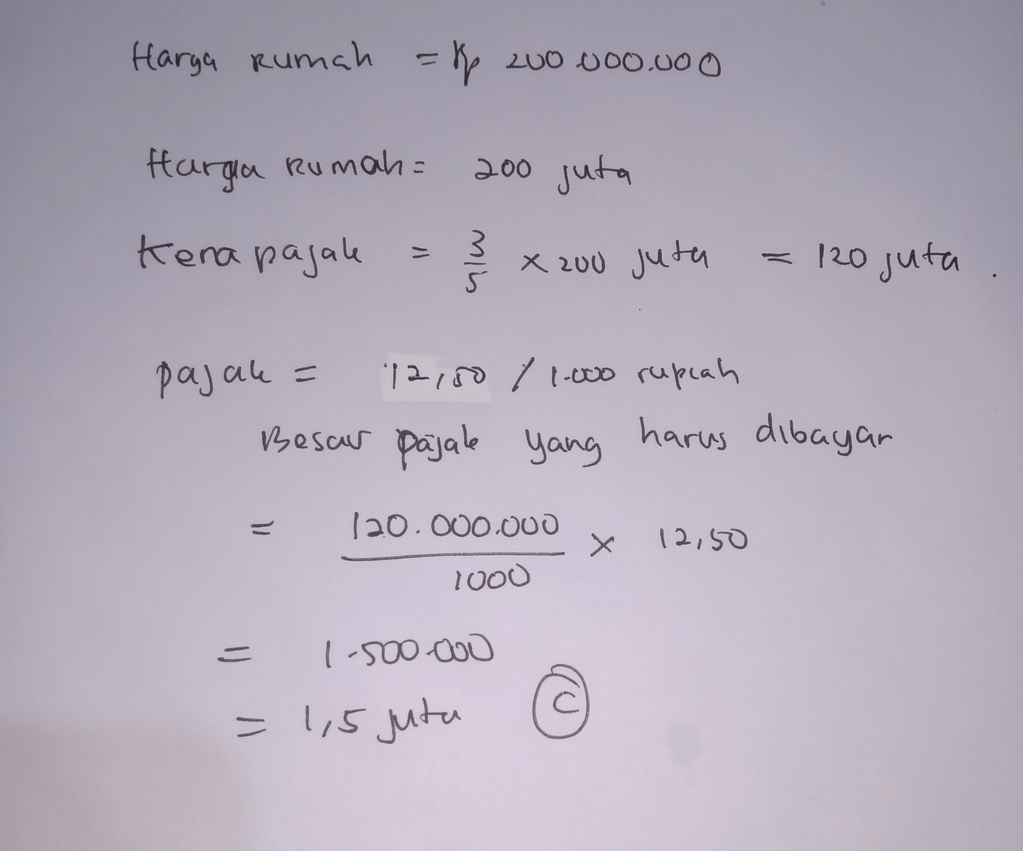 Harga Rumah = Rp 200.000.000
Harga Rumah = 200 juta
Kena pajak = 3/5 x 200 juta = 120 juta.
pajak = 12,50 / 1.000 rupiah
Besar pajak yang harus dibayar
= 120.000.000 / 1000 x 12,50
= 1.500.000
= 1,5 juta C